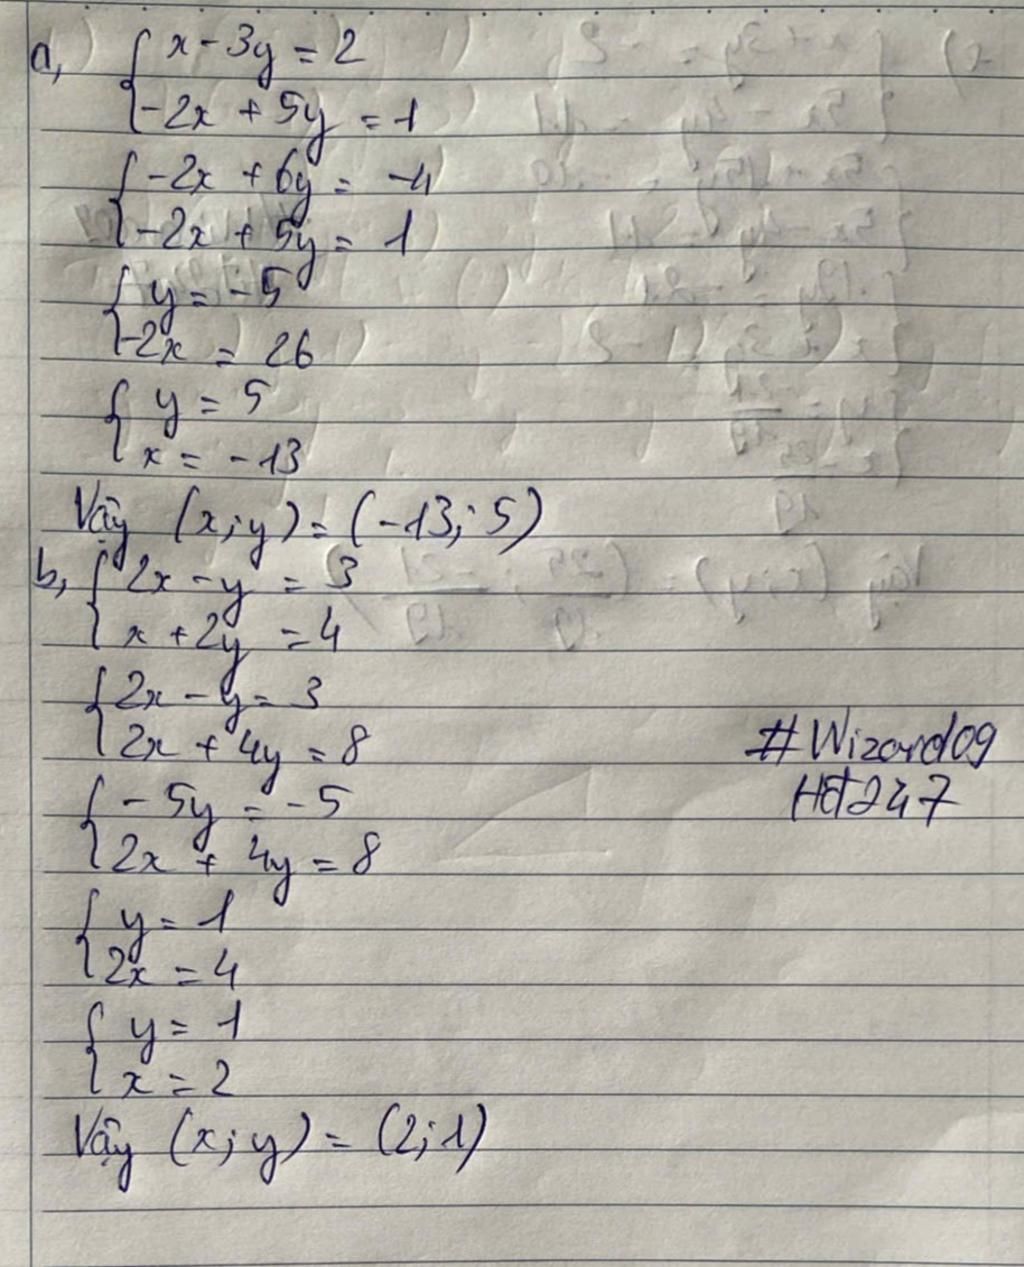 a, { x - 3y = 2
-2x + 5y = 1
{ -2x + 6y = -4
-2x + 5y = 1
{ y = -5
-2x = 26
{ y = 5
x = -13
Vậy (x; y) = (-13; 5)
b, { 2x - y = 3
x + 2y = 4
{ 2x - y = 3
2x + 4y = 8
{ -5y = -5
2x + 4y = 8
{ y = 1
2x = 4
{ y = 1
x = 2
Vậy (x; y) = (2; 1)
#Wizard09